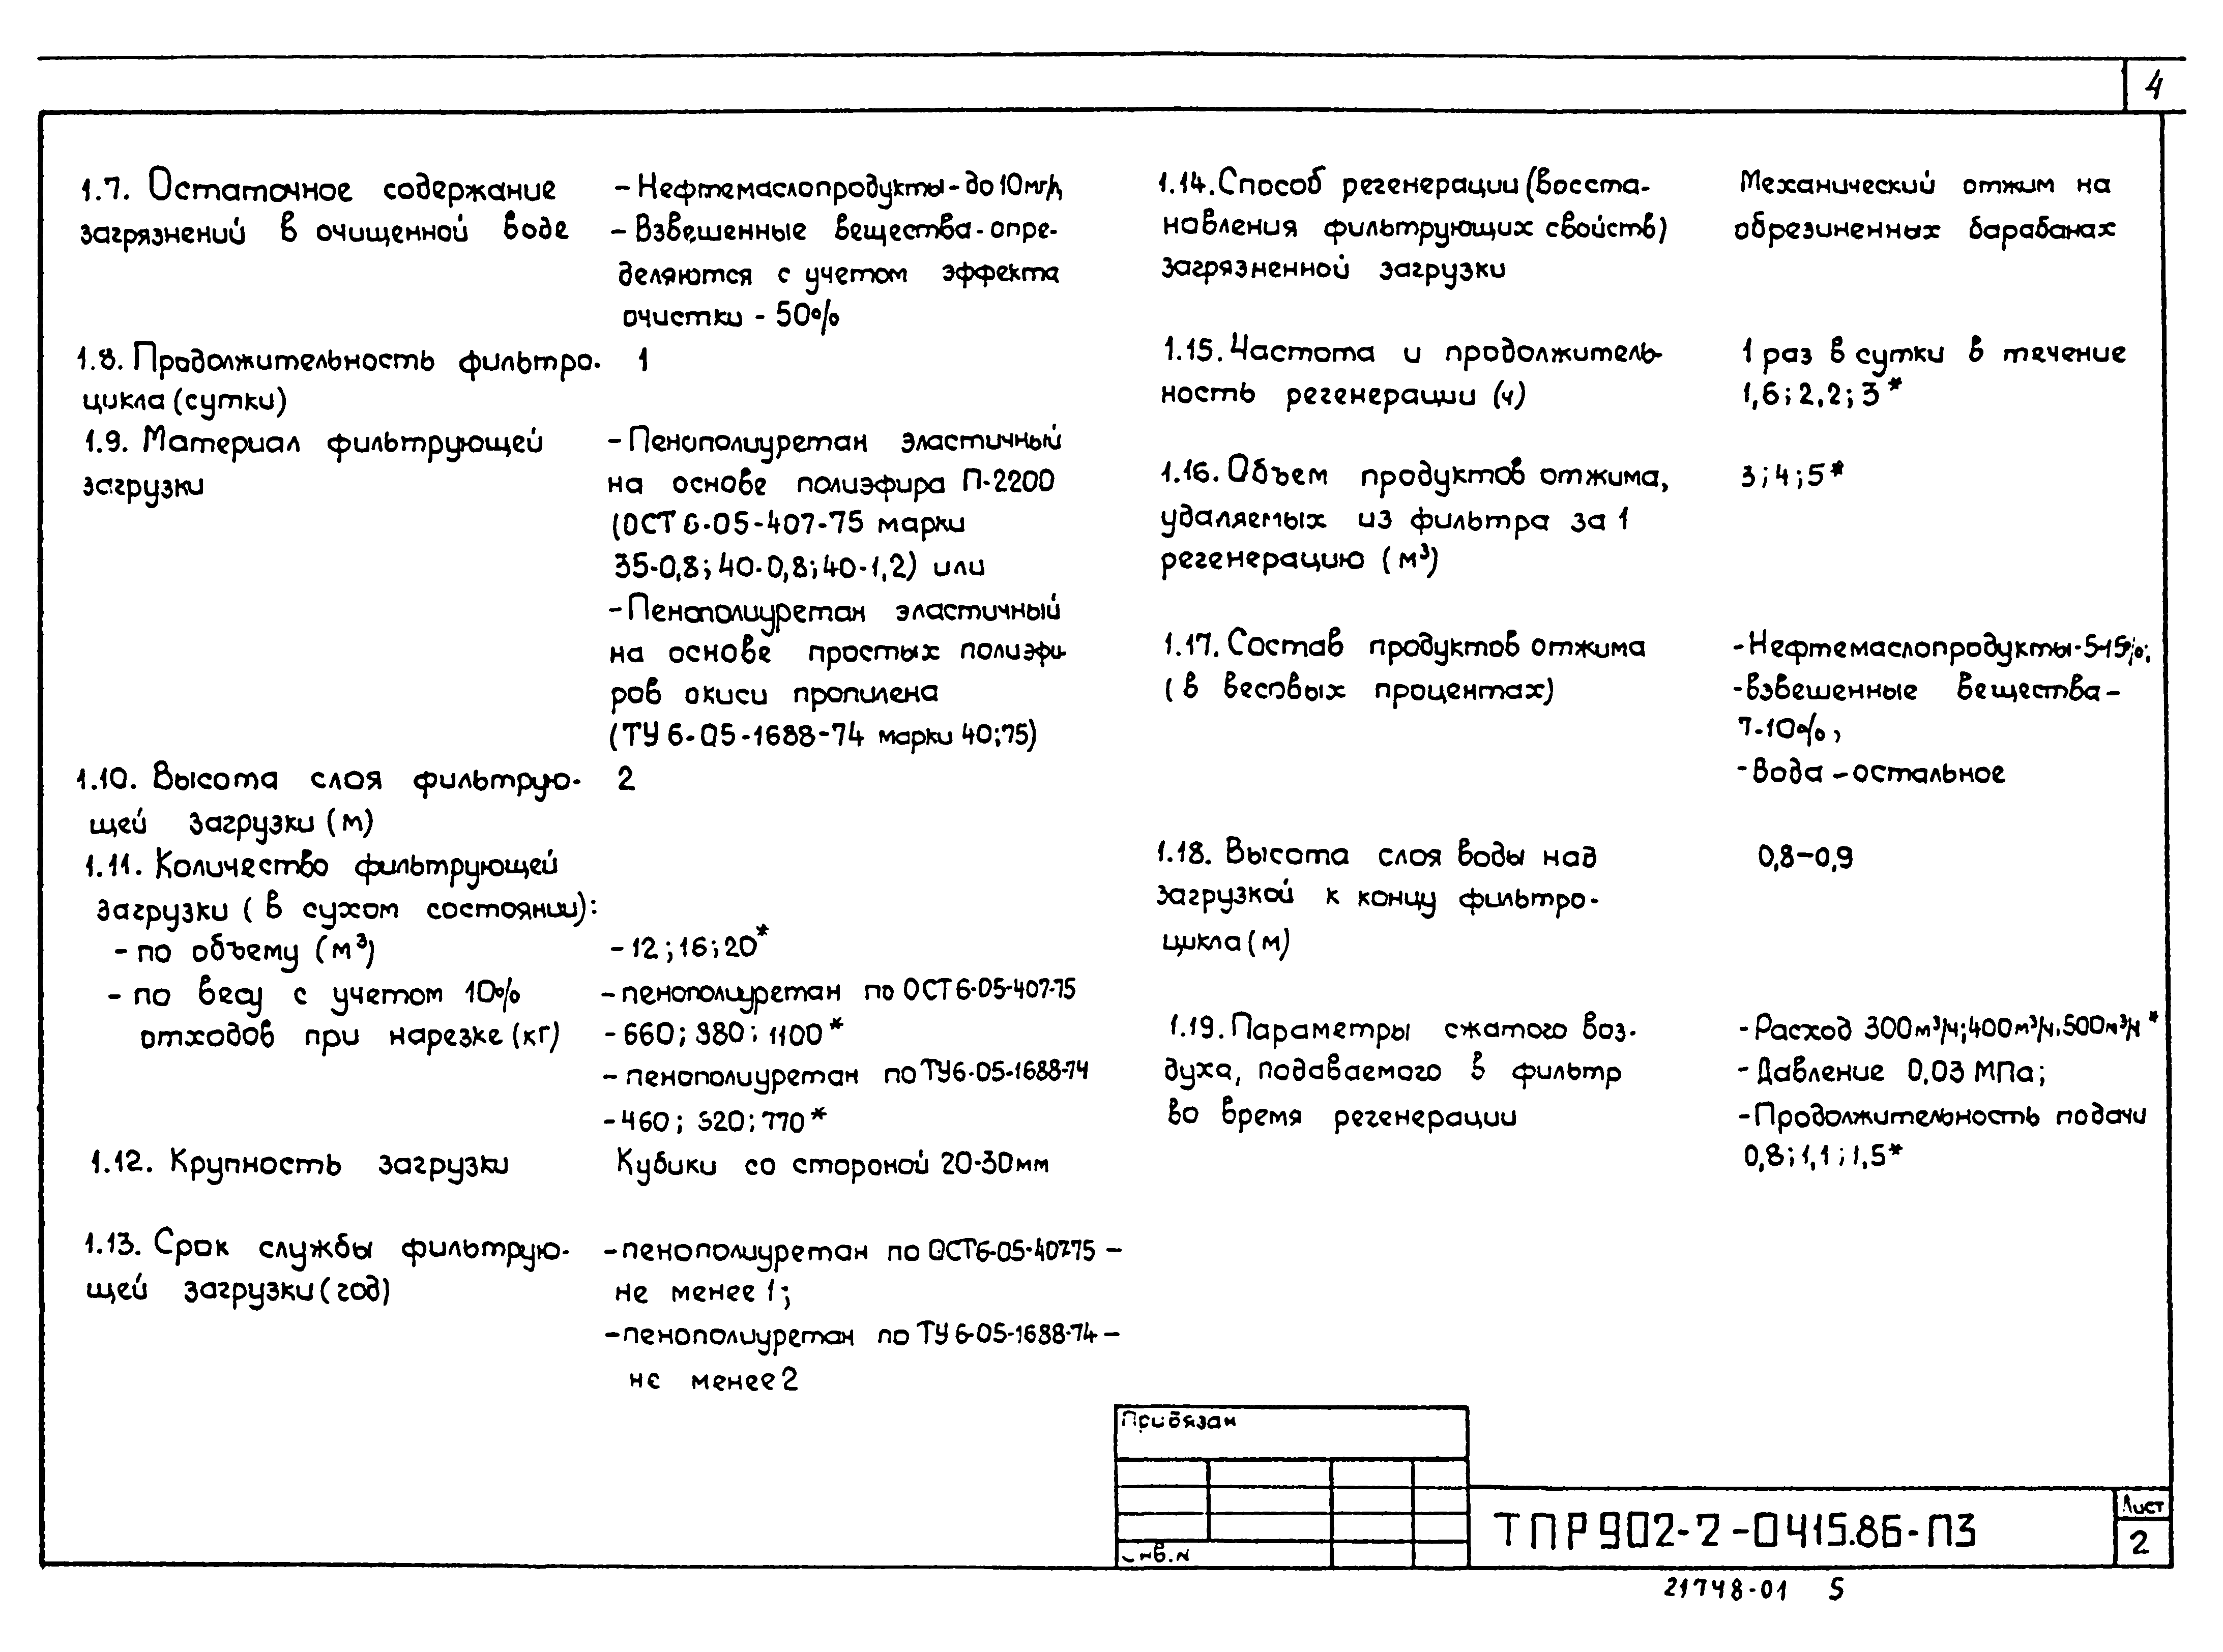 4
1.7. Остаточное содержание
загрязнений в очищенной воде
- Нефтемаслопродукты - до 10мг/л
- Взвешенные вещества - опре-
деляются с учетом эффекта
очистки - 50%
1.8. Продолжительность фильтро-
цикла (сутки)
1
1.9. Материал фильтрующей
загрузки
- Пенополиуретан эластичный
на основе полиэфира П-2200
(ОСТ 6-05-407-75 марки
35-0,8; 40-0,8; 40-1,2) или
- Пенополиуретан эластичный
на основе простых полиэфи-
ров окиси пропилена
(ТУ 6-05-1688-74 марки 40;75)
1.10. Высота слоя фильтрую-
щей загрузки (м)
2
1.11. Количество фильтрующей
загрузки (в сухом состоянии):
- по объему (м³)
- 12; 16; 20*
- по весу с учетом 10%
отходов при нарезке (кг)
- пенополиуретан по ОСТ 6-05-407-75
- 660; 880; 1100*
- пенополиуретан по ТУ6-05-1688-74
- 460; 620; 770*
1.12. Крупность загрузки
Кубики со стороной 20-30мм
1.13. Срок службы фильтрую-
щей загрузки (год)
- пенополиуретан по ОСТ6-05-407-75 -
не менее 1;
- пенополиуретан по ТУ 6-05-1688-74 -
не менее 2
1.14. Способ регенерации (восста-
новления фильтрующих свойств)
загрязненной загрузки
Механический отжим на
обрезиненных барабанах
1.15. Частота и продолжитель-
ность регенерации (ч)
1 раз в сутки в течение
1,6; 2,2; 3*
1.16. Объем продуктов отжима,
удаляемых из фильтра за 1
регенерацию (м³)
3; 4; 5*
1.17. Состав продуктов отжима
(в весовых процентах)
- Нефтемаслопродукты - 5-15%;
- взвешенные вещества -
7-10%,
- вода - остальное
1.18. Высота слоя воды над
загрузкой к концу фильтро-
цикла (м)
0,8-0,9
1.19. Параметры сжатого воз-
духа, подаваемого в фильтр
во время регенерации
- Расход 300м³/ч; 400м³/ч, 500м³/ч *
- Давление 0,03 МПа;
- Продолжительность подачи
0,8; 1,1; 1,5*
Привязан
Инв.N
ТПР 902-2-0415.86-ПЗ
Лист
2
21748-01 5